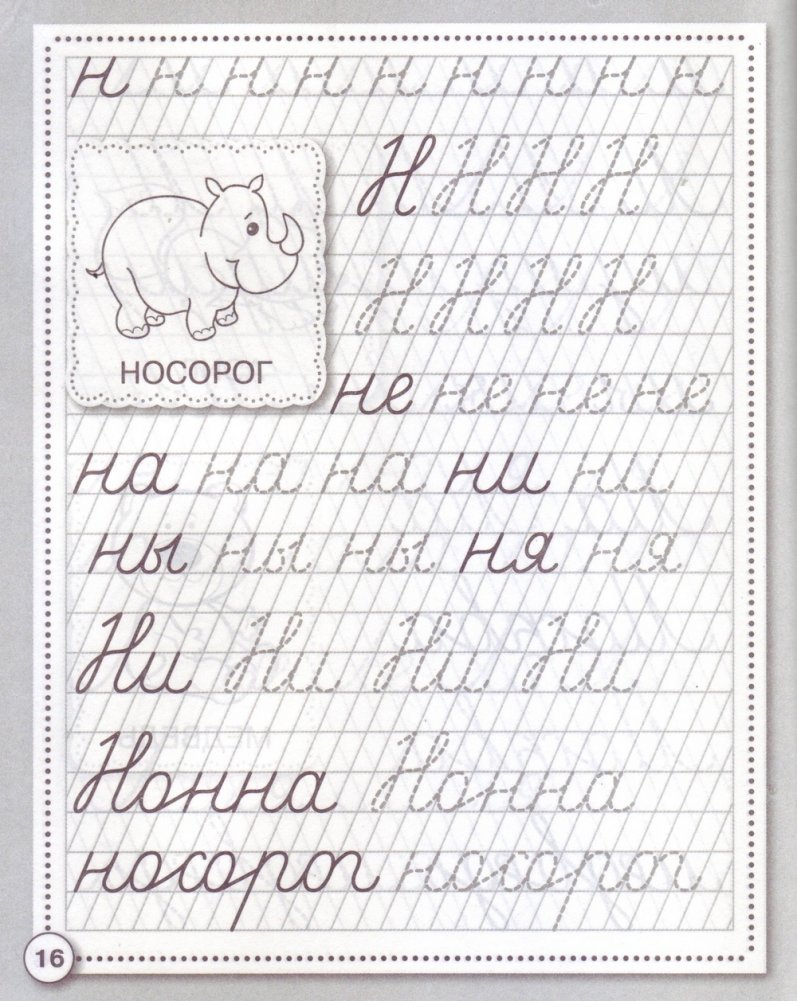 н н н н н н н н н
Н Н Н Н
Н Н Н Н
НОСОРОГ
не не не не
на на на ни ни
ны ны ны ня ня
Ни Ни Ни Ни
Нонна Нонна
носорог носорог
16